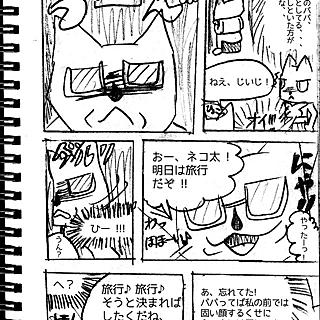 のパパ、
としてる、、
しといた方が
な、
ねえ、じいじ！
オイ!!!
おー、ネコ太！
明日は旅行
だぞ !!
やったーっ!
ひー !!!
うん?
あ、忘れてた!
パパってば私の前では
固い顔するくせに
旅行♪ 旅行♪
そうと決まれば
したくだね、
へ？